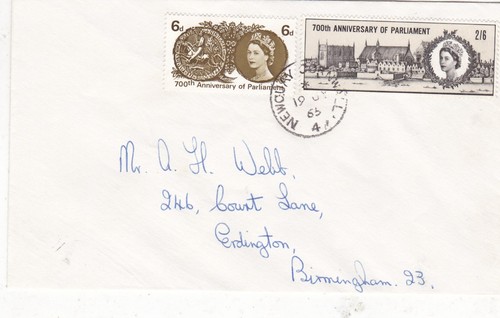 6d 6d
700th Anniversary of Parliament
700th ANNIVERSARY OF PARLIAMENT 2/6
NEWQUAY
19
65
Mr. A. H. Webb,
246, Court Lane,
Erdington,
Birmingham. 23.